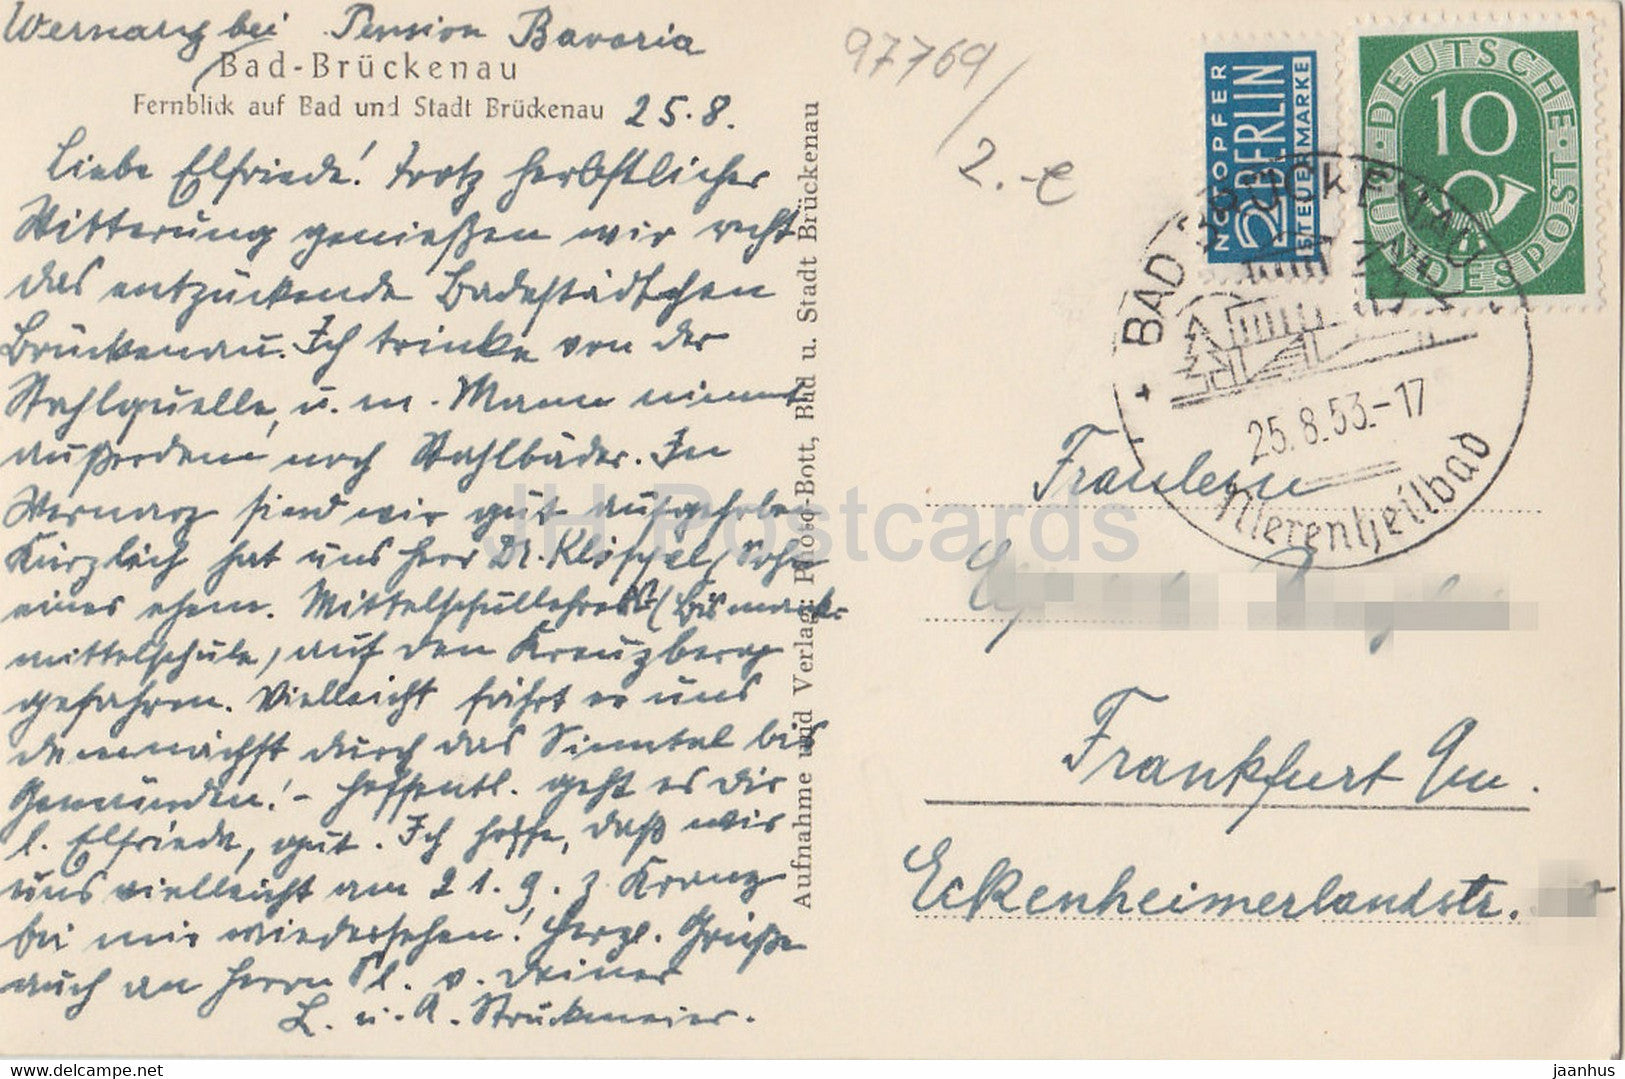 Wernarz bei Pension Bavaria
Bad-Brückenau
Fernblick auf Bad und Stadt Brückenau 25.8.
Liebe Elfriede! Trotz herbstlicher
Witterung genießen wir recht
das entzückende Badestädtchen
Brückenau. Ich trinke von der
Stahlquelle, u. m. Mann nimmt
außerdem noch Stahlbäder. In
Wernarz sind wir gut aufgehoben
Kürzlich hat uns Herr Dr. Sohn
eines ehem. Mittelschullehrers (Bismarck-
mittelschule, auf den Kreuzberg
gefahren. Vielleicht fährt er uns
demnächst durch das Sinntal bis
Gemünden! - Hoffentl. geht es dir
l. Elfriede, gut. Ich hoffe, daß wir
uns vielleicht am 21.9. z. Kranz
bei mir wiedersehen! Herzl. Grüße
auch an Herrn Pl. v. Deiner
L. u. A. Struckmeier.
Aufnahme und Verlag: Photo-Bott, Bad u. Stadt Brückenau
97769/
2.-€
NOTOPFER
2 BERLIN
STEUERMARKE
DEUTSCHE BUNDESPOST
10
BAD BRÜCKENAU
25.8.53.-17
Nierenheilbad
Fräulein
Frankfurt M.
Eckenheimerlandstr.
JH Postcards
delcampe.net
jaanhus